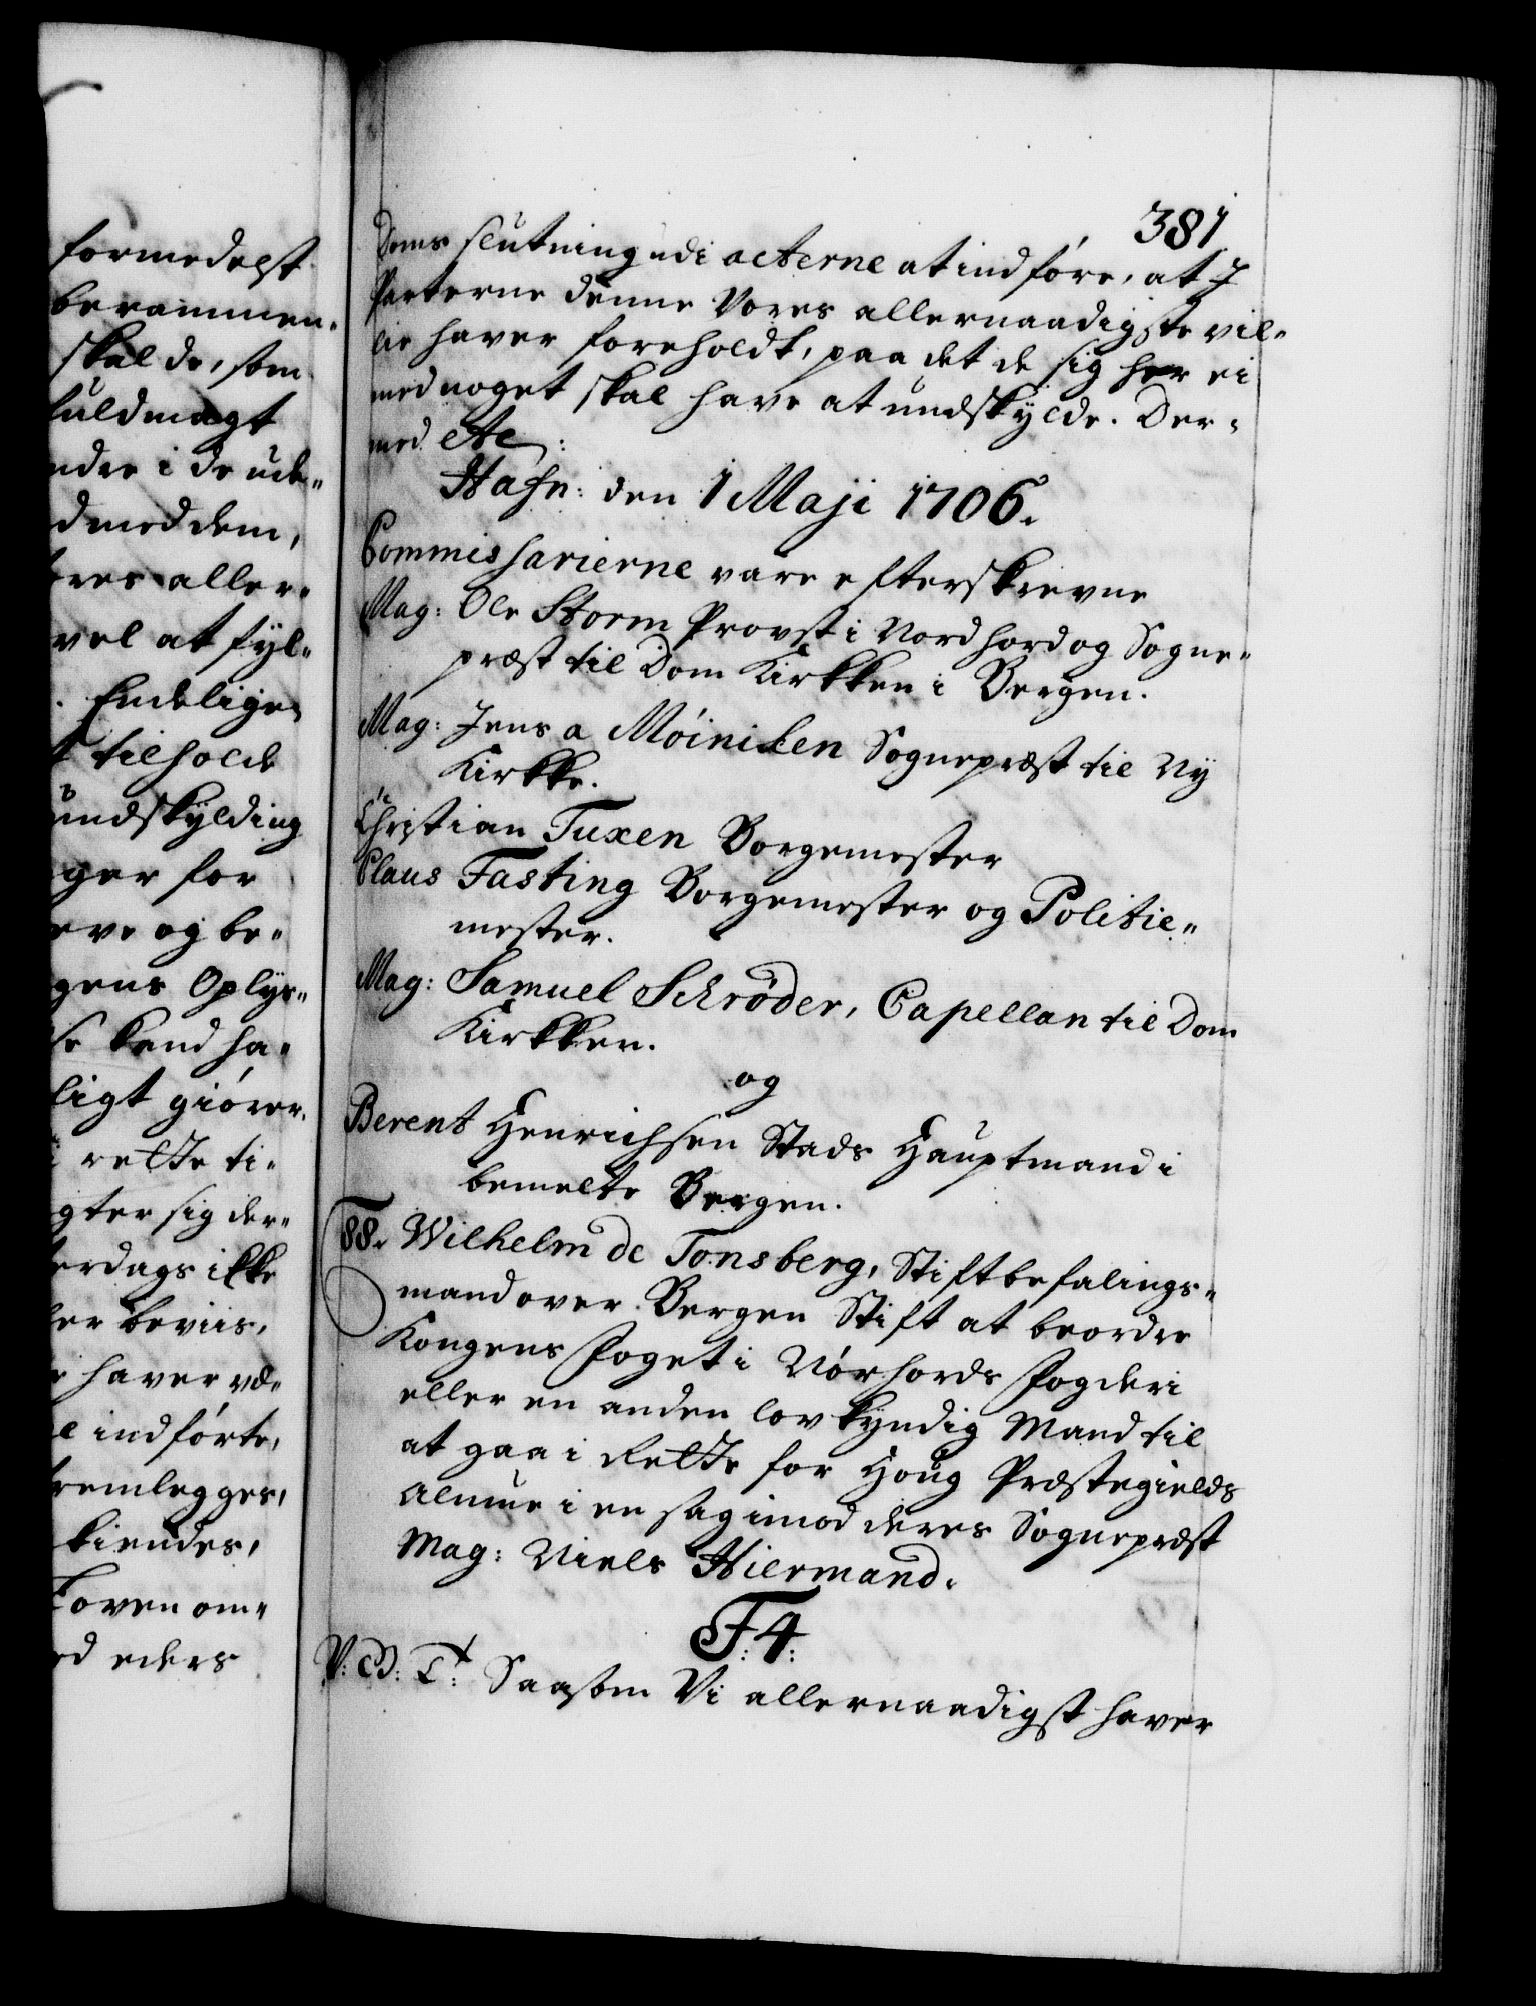 formedelst
berammen„
skal de, som
fuldmagt
ndre i de ude„
d med dem,
ores aller„
vel at fyl„
. Endeligen
t tilholde
undskylding
ger for
eve og be„
gens Oplys„
se kand ha„
ligt giører,
i rette ti„
gter sig der„
terdags ikke
ler beviis,
r haver væ„
le indførte,
fremlegges,
kiendes,
Loven om„
ed eders
381
Doms slutning udi acterne at indføre, at I
Parterne denne Vores allernaadigste vil„
lie haver foreholdt, paa det de sig her ei
med noget skal have at undskylde. Der„
med etc:
Hafn: den 1 Maji 1706.
Commissarierne vare efterskrevne
Mag: Ole Storm Provst i Nordhord og Sogne„
præst til Dom Kirkken i Bergen.
Mag: Jens a Møinichen Sognepræst til Ny
Kirkke.
Christian Tuxen Borgemester
Claus Fasting Borgemester og Politie„
mester.
Mag: Samuel Schrøder, Capellan til Dom
Kirkken.
og
Berent Henrichsen Stads Hauptmand i
bemelte Bergen.
88. Wilhelm de Tonsberg, Stiftbefalings„
mand over Bergen Stift at beordre
Kongens Foget i Nørhords Fogderi
eller en anden lovkyndig Mand til
at gaa i Rette for Houg Præstegields
Almue i en sag imod deres Sognepræst
Mag: Niels Hiermand.
F: 4:
V: G: T: Saasom Vi allernaadigst haver